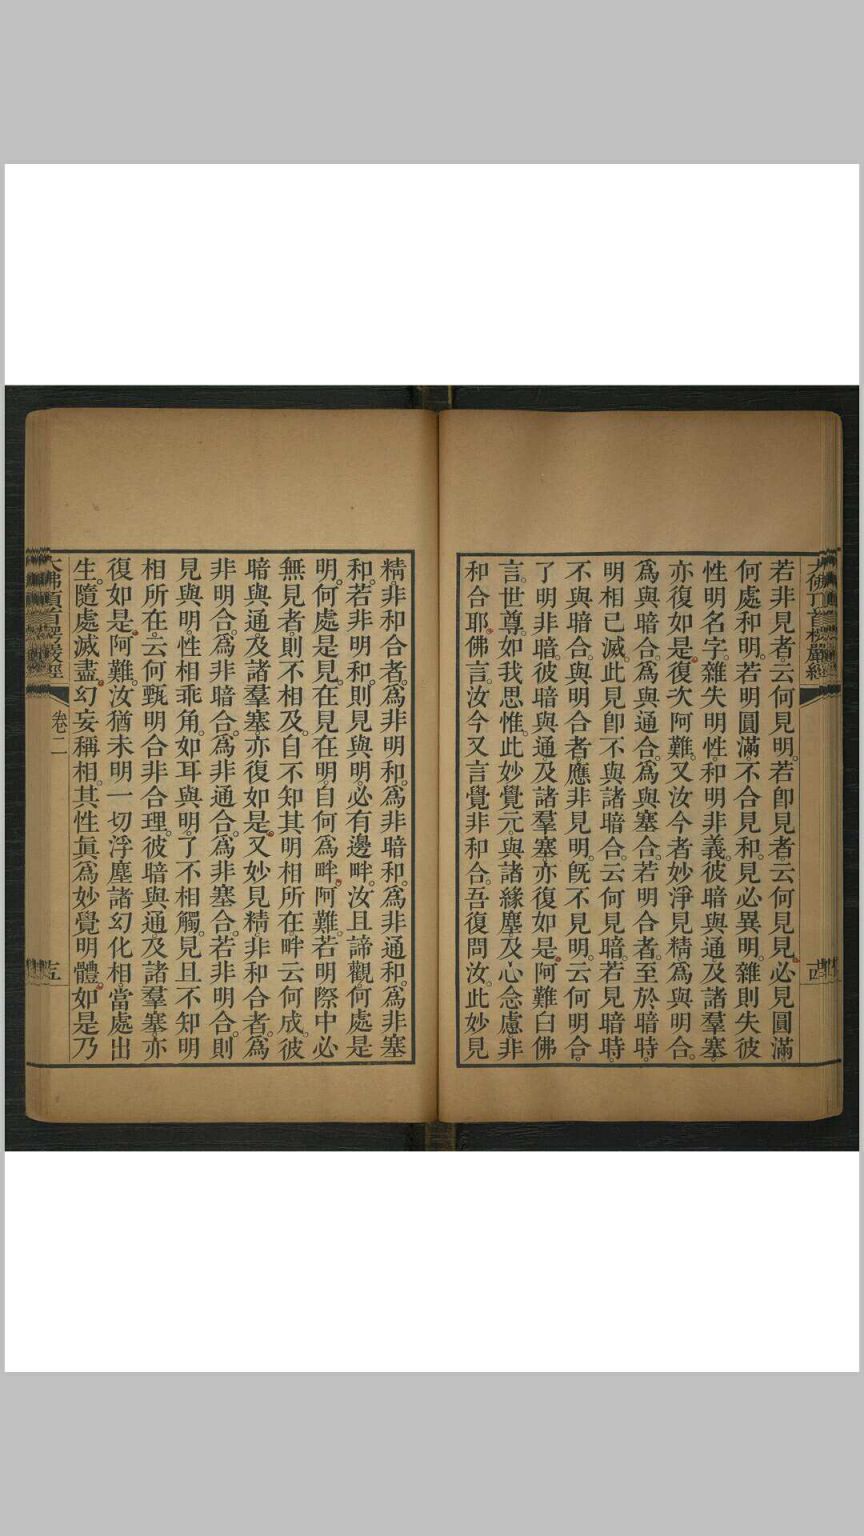 大佛頂首楞嚴經
若非見者。云何見明。若即見者。云何見見。必見圓滿
何處和明。若明圓滿。不合見和。見必異明。雜則失彼
性明名字。雜失明性。和明非義。彼暗與通及諸羣塞。
亦復如是。復次阿難。又汝今者妙淨見精。爲與明合。
爲與暗合。爲與通合。爲與塞合。若明合者。至於暗時。
明相已滅。此見即不與諸暗合。云何見暗。若見暗時。
不與暗合。與明合者。應非見明。旣不見明。云何明合。
了明非暗。彼暗與通及諸羣塞亦復如是。阿難白佛
言。世尊。如我思惟。此妙覺元。與諸緣塵及心念慮非
和合耶。佛言。汝今又言覺非和合。吾復問汝。此妙見
精非和合者。爲非明和。爲非暗和。爲非通和。爲非塞
和。若非明和。則見與明。必有邊畔。汝且諦觀。何處是
明。何處是見。在見在明。自何爲畔。阿難。若明際中必
無見者。則不相及。自不知其明相所在。畔云何成。彼
暗與通及諸羣塞亦復如是。又妙見精。非和合者。爲
非明合。爲非暗合。爲非通合。爲非塞合。若非明合。則
見與明。性相乖角。如耳與明。了不相觸。見且不知明
相所在。云何甄明合非合理。彼暗與通及諸羣塞亦
復如是。阿難。汝猶未明一切浮塵諸幻化相。當處出
生。隨處滅盡。幻妄稱相。其性眞爲妙覺明體。如是乃
大佛頂首楞嚴經
卷二